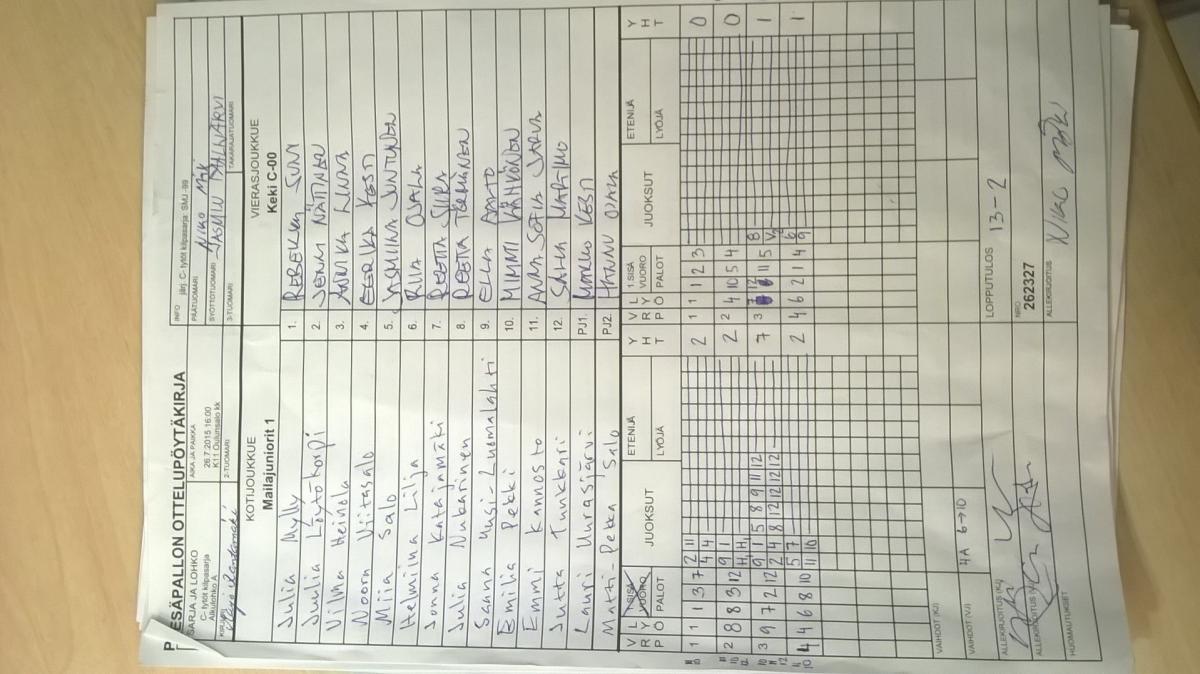 PESÄPALLON OTTELUPÖYTÄKIRJA
SARJA JA LOHKO
C- tytöt kilpasarja
Alkulohko A
AIKA JA PAIKKA
26.7.2015 16:00
K11 Oulunsalo kk
INFO järj. C- tytöt kilpasarja: SMJ -99
PÄÄTUOMARI Niko Mäk
SYÖTTÖTUOMARI JASMIN
KIRJURI
2-TUOMARI
3-TUOMARI
TAKARAJATUOMARI
KOTIJOUKKUE
Mailajuniorit 1
VIERASJOUKKUE
Keki C-00
Julia Mylly 1. REBEKKA SUNI
Juulia Löytökorpi 2. JENNI NÄTTINEN
Vilma Heinola 3. ANNIKA LINNA
Noora Viitasalo 4. EERIKA KESTI
Miia Salo 5. JASMIINA JUNTUNEN
Helmiina Lilja 6. RIIA OJALA
Jonna Katajamäki 7. REETTA SIIRA
Julia Nukarinen 8. REETTA TÖRMÄNEN
Saana Uusi-Luomalahti 9. ELLA AALTO
Emilia Pekki 10. MIMMI KÄHKÖNEN
Emmi Kannosto 11. ANNA SOFIA
Jutta Tunkkari 12. SALLA MARTIMO
Lauri Uurasjärvi PJ1. MARKKO KESTI
Matti-Pekka Salo PJ2. HANNU OJALA
V R P L Y Ö 1.SISÄ VUORO PALOT JUOKSUT ETENIJÄ LYÖJÄ Y H T
V R P L Y Ö 1.SISÄ VUORO PALOT JUOKSUT ETENIJÄ LYÖJÄ Y H T
1 1 1 3 7 2 11 2 1 1 1 2 3 0
4 4
2 8 8 3 12 9 1 2 2 4 10 5 4 0
H, H,
3 9 7 2 12 9 1 5 8 9 11 12 7 3 7 12 11 5 8 1
2 4 8 12 12 12 12
4 4 6 8 10 5 7 2 4 6 2 1 4 6 1
11 10 9
VAIHDOT (KJ)
VAIHDOT (VJ) 4A 6→10
LOPPUTULOS 13 - 2
ALLEKIRJOITUS (KJ)
ALLEKIRJOITUS (VJ)
NRO
262327
HUOMAUTUKSET
ALLEKIRJOITUS Niko Mäk